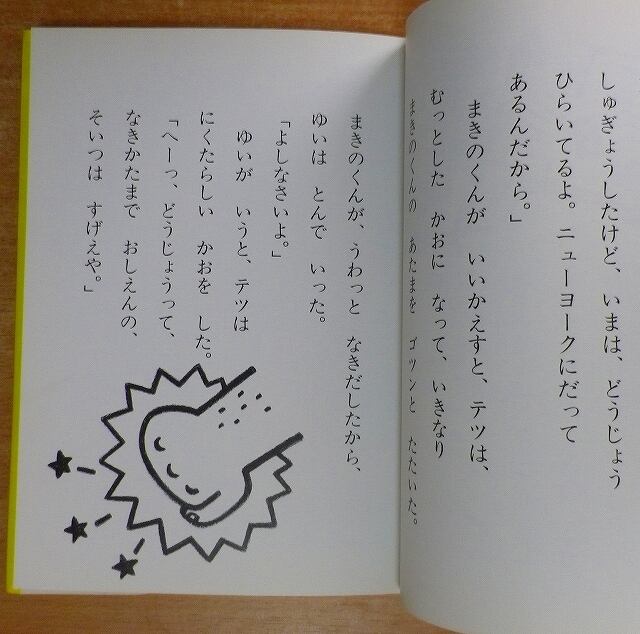 しゅぎょうしたけど、いまは、どうじょう
ひらいてるよ。ニューヨークにだって
あるんだから。」
まきのくんが　いいかえすと、テツは、
むっとした　かおに　なって、いきなり
まきのくんの　あたまを　ゴツンと　たたいた。
まきのくんが、うわっと　なきだしたから、
ゆいは　とんで　いった。
「よしなさいよ。」
ゆいが　いうと、テツは
にくたらしい　かおを　した。
「へーっ、どうじょうって、
なきかたまで　おしえんの、
そいつは　すげえや。」